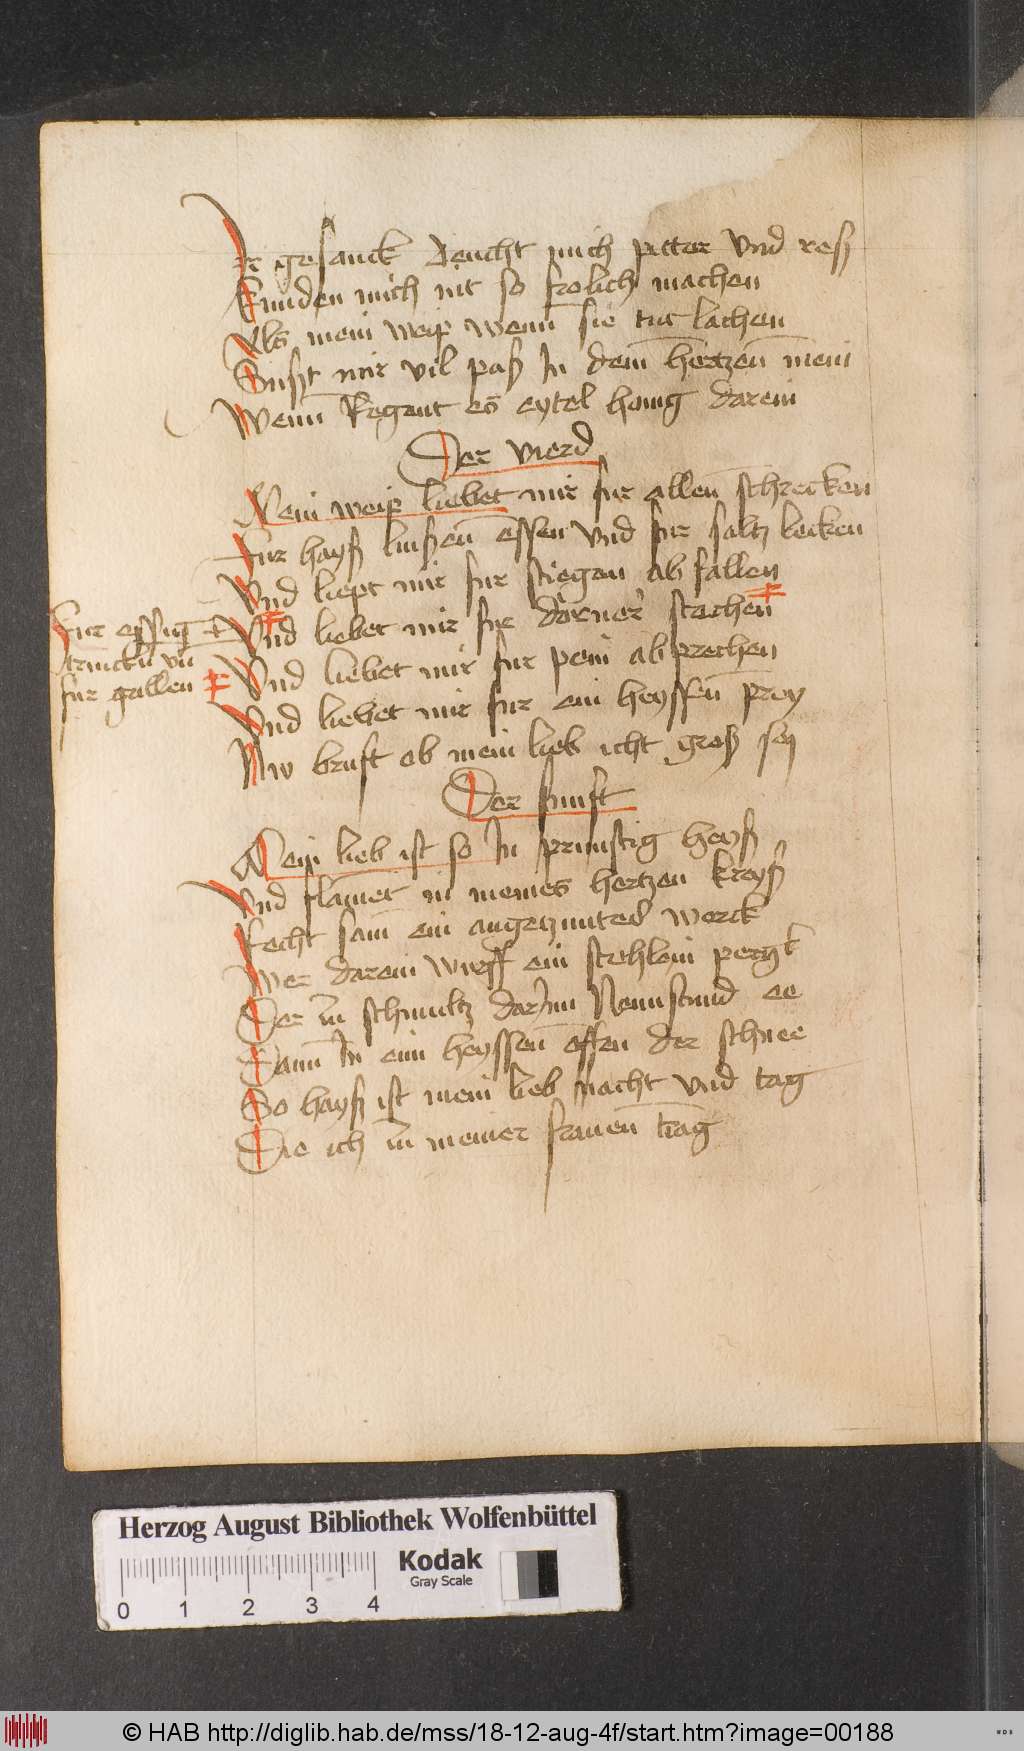 Ir gesanck deucht mich pitter vnd reß
Kunden mich nit so frolich machen
Als mein weip wenn sie tut lachen
Sunst mir vil paß In dem hertzen mein
Wenn Regent es eytel honig darein
Der vierd
Mein weip liebet mir fur allen schrecken
Fur hayß linßen essen vnd fur saltz lecken
Vnd liept mir fur stiegen ab fallen
Vnd liebet mir fur dorner stachen
Fur essig
trincken vn
fur gallen
Vnd liebet mir fur pein ab prechen
Vnd liebet mir fur ein heyssen prey
Nw bruft ob mein lieb icht groß sej
Der funft
Mein lieb ist so In prunstig heyß
Vnd flamet in meines hertzen kreyß
Recht sam ein angetzunted werck
Wer darein wurff ein stehlein pergk
Der im schmultz darInn Neun stund ee
Dann In eim heyssen offen der schnee
So hayß ist mein lieb nacht vnd tag
Die ich im meiner frauen trag
Herzog August Bibliothek Wolfenbüttel
Kodak
Gray Scale
0 1 2 3 4
© HAB http://diglib.hab.de/mss/18-12-aug-4f/start.htm?image=00188
WDB